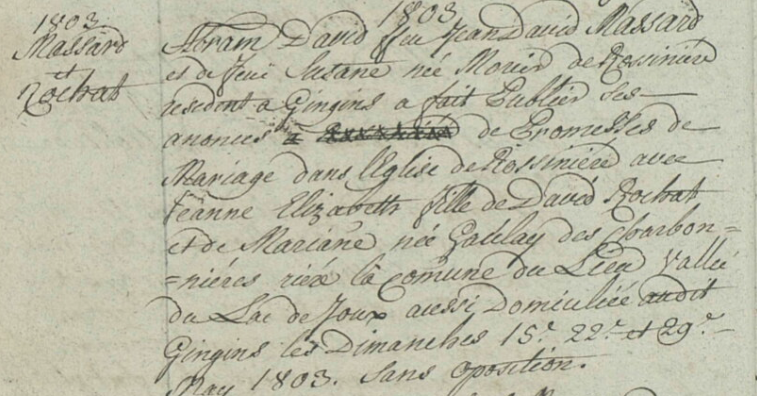 1803
1803
Massard
et
Rochat
Abram David ffeu Jean David Massard
et de feue Susane née Morier de Rossiniére
resident a Gingins a fait Publier ses
anonces a de Promesses de
Mariage dans l'Eglise de Rossiniere avec
Jeanne Elizabeth fille de David Rochat
et de Mariane née Golay des Charbon=
=niéres riére la comune du Lieu Vallée
du Lac de Joux aussi Domiciliée audit
Gingins les Dimanches 15.e 22.e et 29.e
May 1803. Sans oposition.